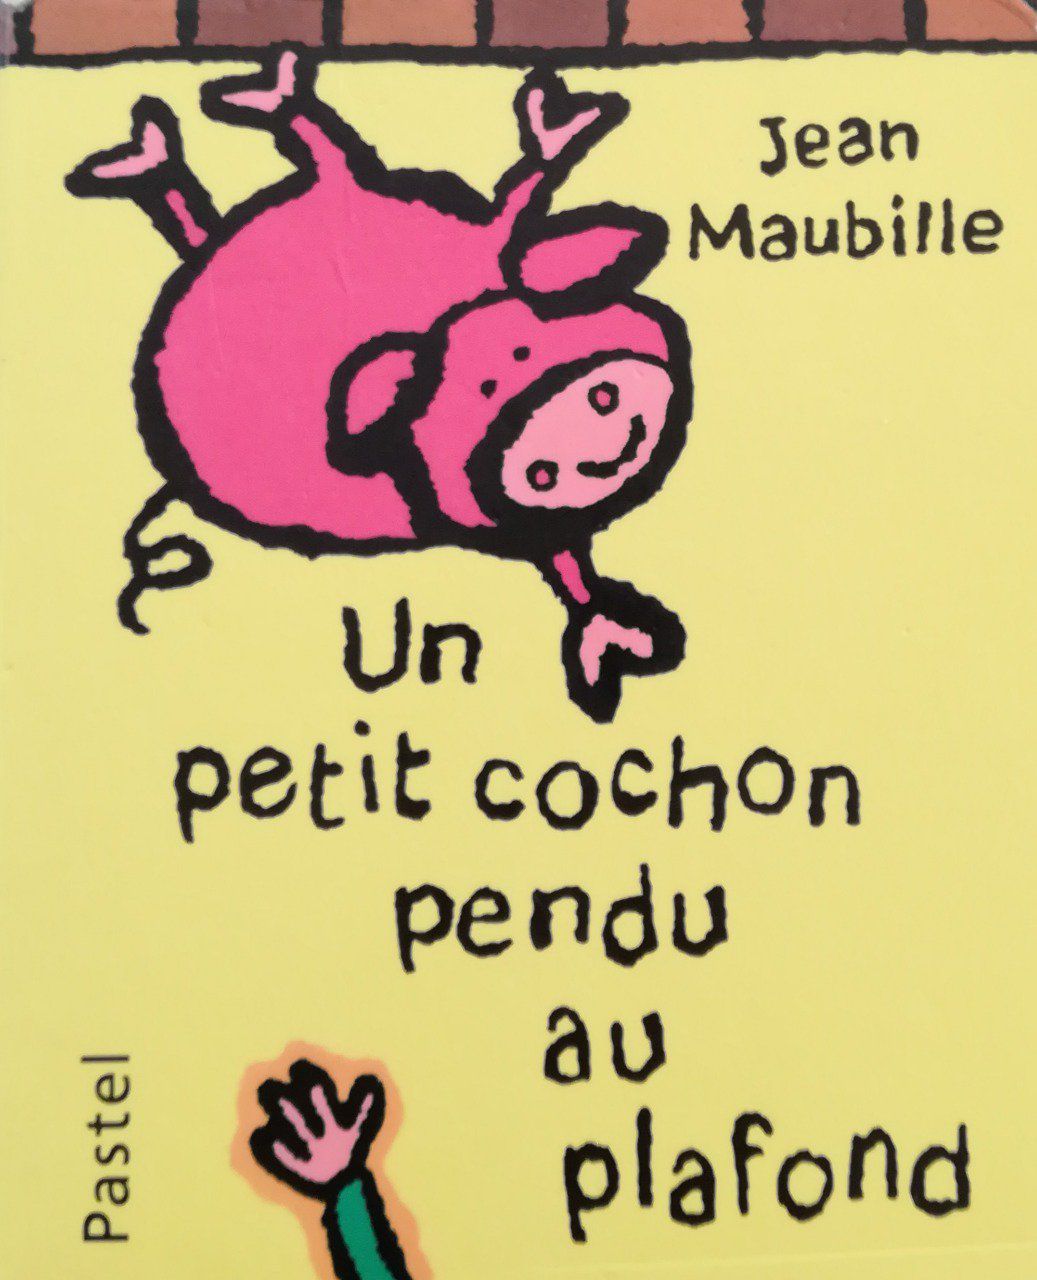 Jean
Maubille
Un
petit cochon
pendu
au
plafond
Pastel